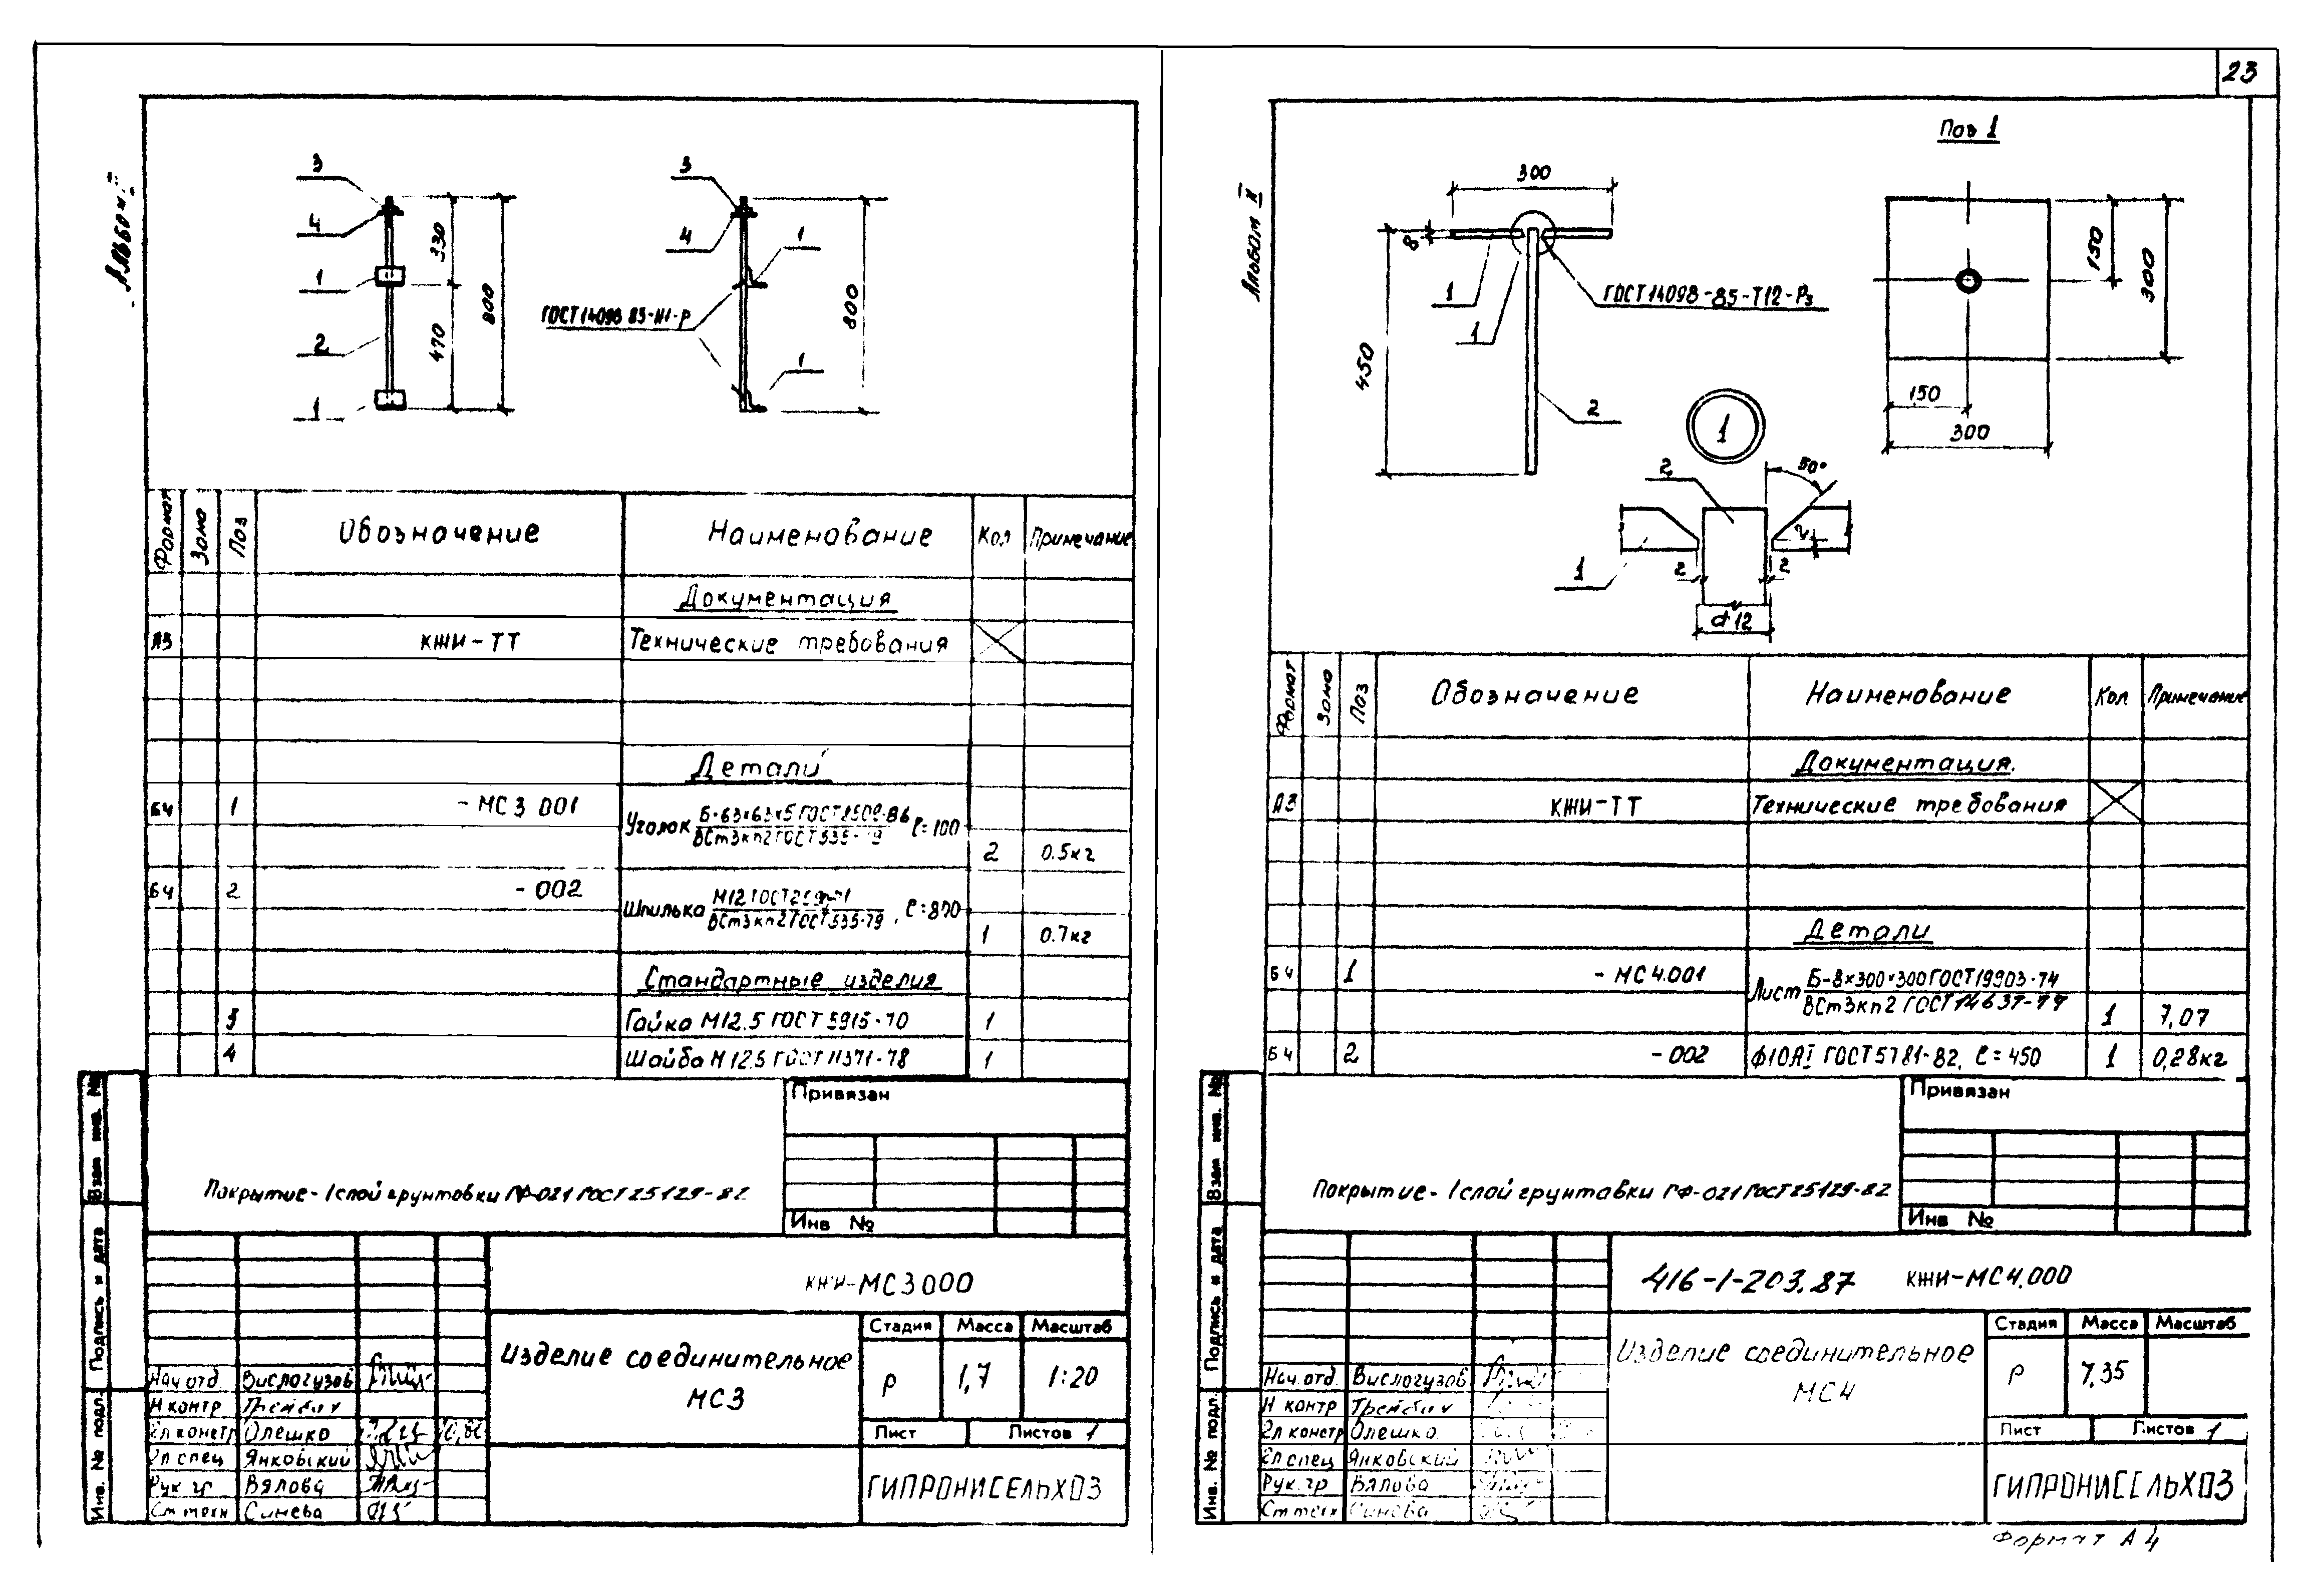 23
Альбом II
3
4
1
2
1
330
470
800
3
4
1
1
800
Формат
Зона
Поз
Обозначение
Наименование
Кол
Примечание
Документация
А3
КЖИ-ТТ
Технические требования
Детали
БЧ
1
-МС3 001
Уголок
ВСт3кп2 ГОСТ 535-79
ℓ=100
2
0.5кг
БЧ
2
-002
Шпилька
ВСт3кп2 ГОСТ 535-79
1
0.7кг
Стандартные изделия
3
Гайка М12.5 ГОСТ 5915-70
1
4
Шайба М12.5 ГОСТ 11371-78
1
Привязан
Покрытие-1слой грунтовки ГФ-021 ГОСТ 25129-82
Инв №
КЖИ-МС3000
Изделие соединительное
МС3
Стадия
Масса
Масштаб
Р
1,7
1:20
Лист
Листов 1
ГИПРОНИСЕЛЬХОЗ
Нач отд. Вислогузов
Н контр
Гл констр Олешко
Гл спец Янковский
Рук гр Вялова
Ст техн Синева
Взам инв. №
Подпись и дата
Инв. № подл.
Альбом II
Поз 1
300
8
450
1
1
ГОСТ 14098-85-Т12-Рз
2
150
300
150
300
1
2
50°
2
1
2
2
d12
Формат
Зона
Поз
Обозначение
Наименование
Кол
Примечание
Документация.
А3
КЖИ-ТТ
Технические требования
Детали
БЧ
1
-МС4.001
Лист
Б-8×300×300 ГОСТ 19903-74
ВСт3кп2 ГОСТ 14637-79
1
7,07
БЧ
2
-002
ф10АI ГОСТ 5781-82, ℓ=450
1
0,28кг
Привязан
Покрытие-1слой грунтовки ГФ-021 ГОСТ 25129-82
Инв №
416-1-203.87 КЖИ-МС4.000
Изделие соединительное
МС4
Стадия
Масса
Масштаб
Р
7,35
Лист
Листов 1
ГИПРОНИСЕЛЬХОЗ
Нач.отд. Вислогузов
Н контр
Гл констр Олешко
Гл спец Янковский
Рук.гр Вялова
Ст техн Синева
Взам инв. №
Подпись и дата
Инв. № подл.
Формат А4